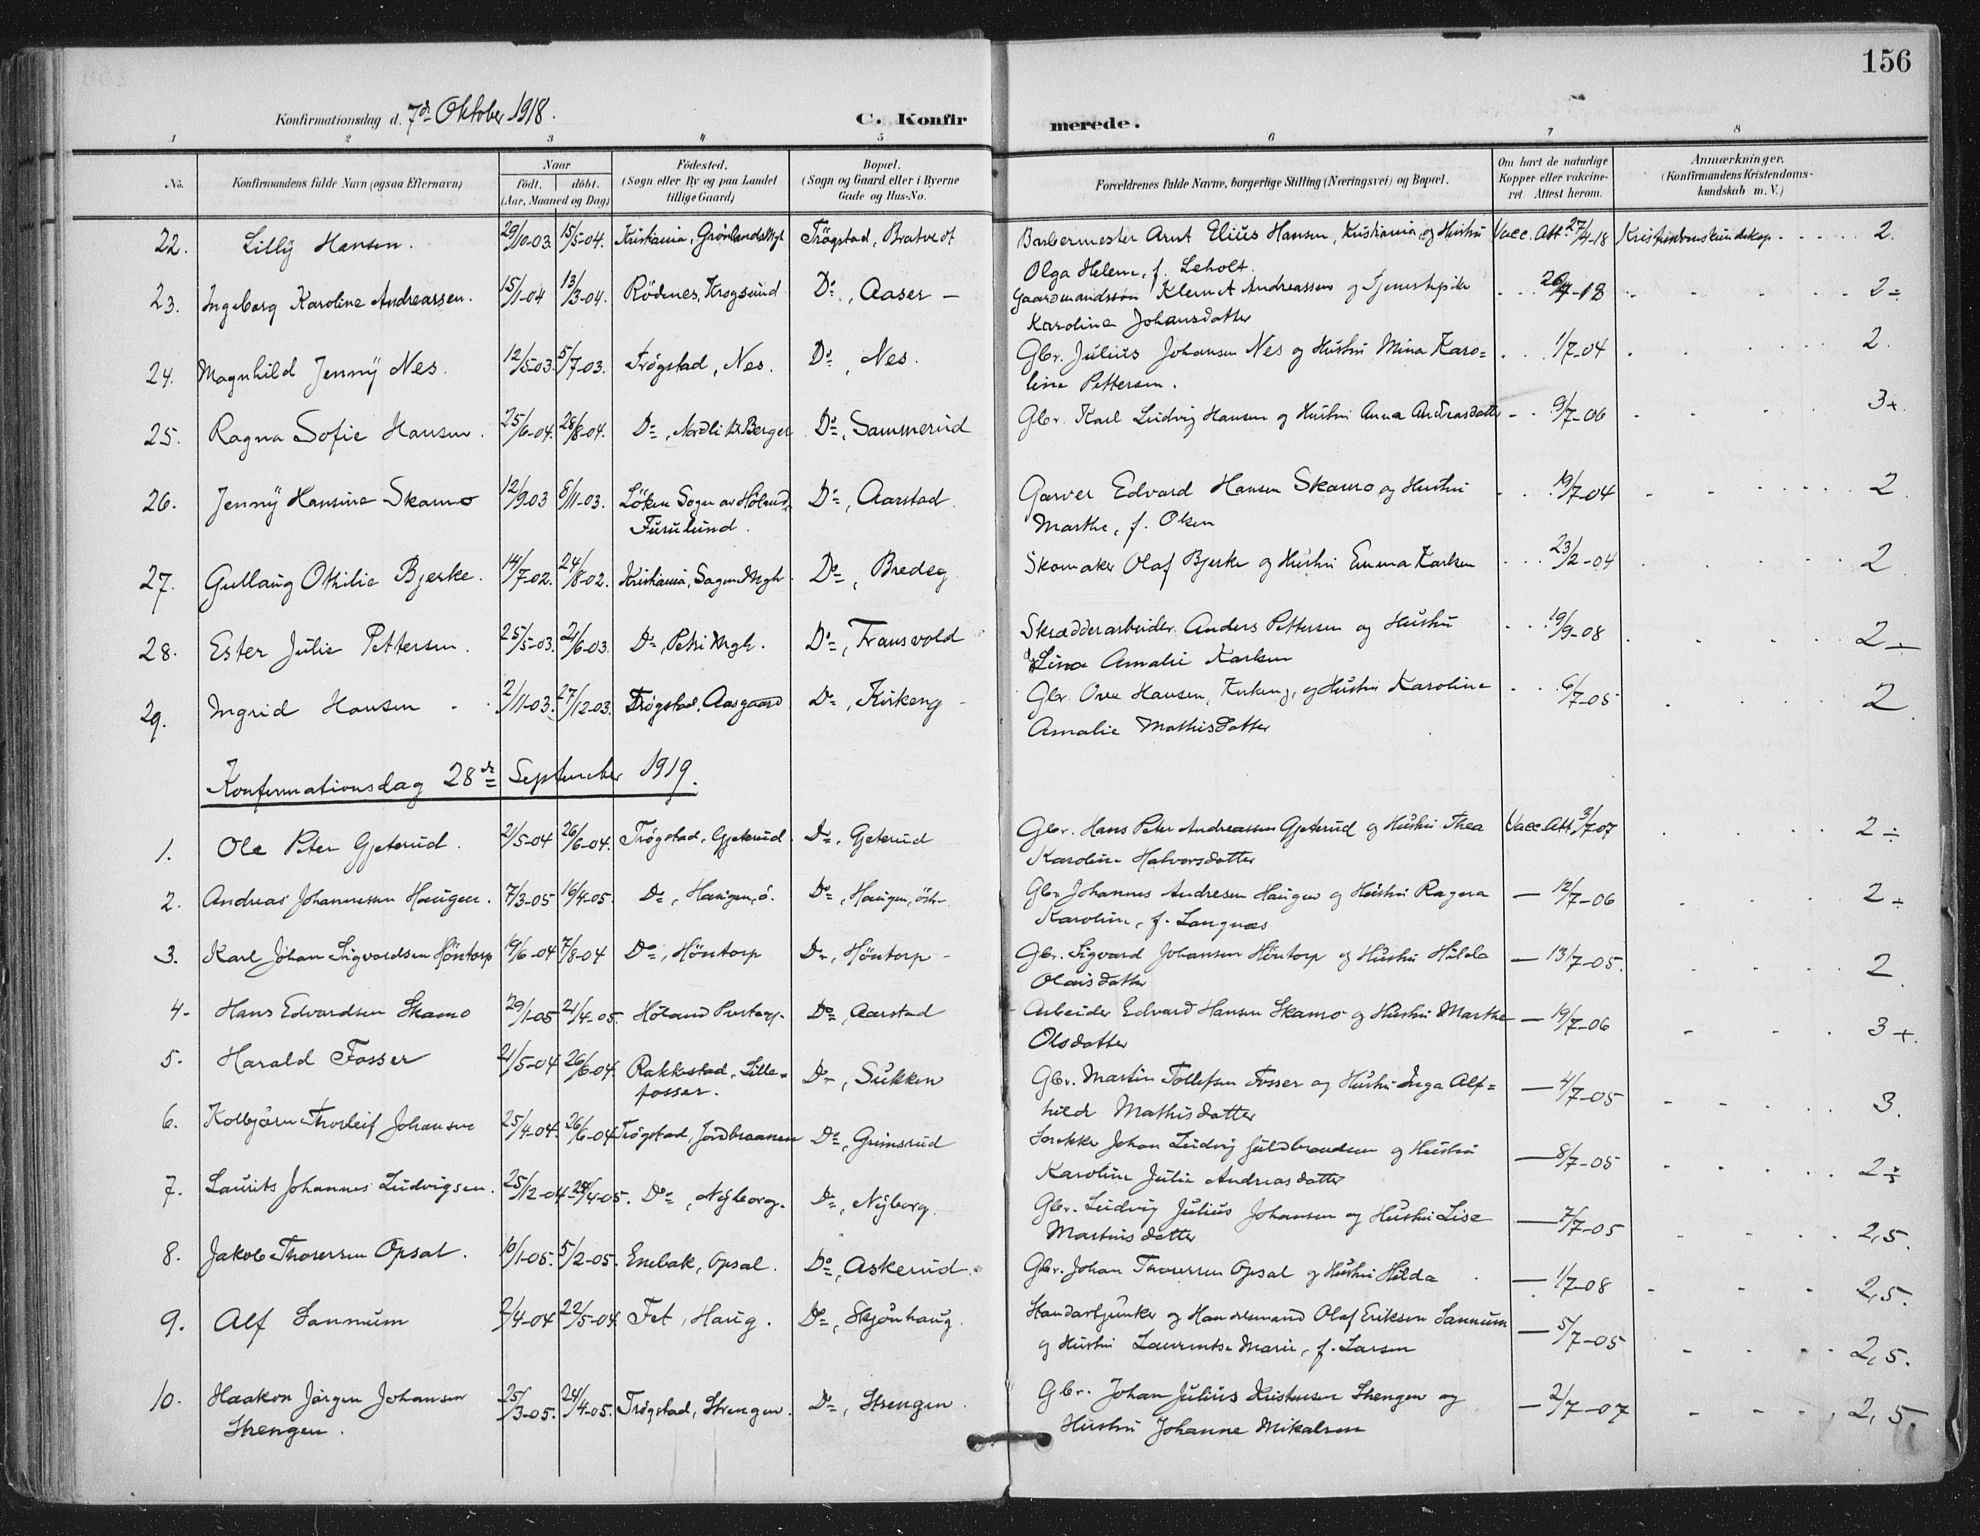 156
Konfirmationsdag d. 7de Oktober 1918.
C. Konfirmerede.
1 2 3 4 5 6 7 8
No. Konfirmandens fulde Navn (ogsaa Efternavn) Naar født. døbt. (Aar, Maaned og Dag) Fødested. (Sogn eller By og paa Landet tillige Gaard) Bopæl. (Sogn og Gaard eller i Byerne Gade og Hus-No. Forældrenes fulde Navne, borgerlige Stilling (Næringsvei) og Bopæl. Om havt de naturlige Kopper eller vakcineret. Attest herom. Anmærkninger. (Konfirmandens Kristendomskundskab m. V.)
22. Lilly Hansen. 29/10-03. 15/5-04. Kristiania, Grønlands Mgh Trögstad, Bratvedt Barbermester Arnt Elius Hansen, Kristiania, og Hustru Vacc. Att. 27/4-18 Kristendomskundskap 2.
Olga Helene, f. Leholt.
23. Ingeborg Karoline Andreassen. 15/1-04 13/3-04. Rödenes, Krogsund Do, Aaser - Gaardmandssøn Klemet Andreassen og Tjenestepike 2÷
Karoline Johansdatter
24. Magnhild Jenny Nes. 12/5-03. 5/7-03. Trögstad, Nes. Do, Nes. Gbr. Julius Johansen Nes og Hustru Mina Karo= 1/7-04 2.
line Pettersen.
25. Ragna Sofie Hansen. 25/6-04. 28/8-04. Do, Nordli Berger Do, Sammerud Gbr. Karl Ludvig Hansen og Hustru Anna Andreasdatter 9/7-06 3+.
26. Jenny Hansine Skamo 12/9-03 8/11-03. Löken Sogn av Höland, Do, Aarstad. Garver Edvard Hansen Skamo og Hustru 19/7-04 2.
Furulund. Marthe, f. Olsen
27. Gullaug Othilie Bjerke. 14/7-02. 24/8-02. Kristiania, Sagene Mgh. Do, Bredeg Skomaker Olaf Bjerke og Hustru Emma Karlsen 23/2-04 2
28. Ester Julie Pettersen. 25/5-03. 21/6-03. Do, Petri Mgh. Do, Transvold Skrædderarbeider Anders Pettersen og Hustru 19/9-08 2÷
Lina Amalie Karlsen
29. Ingrid Hansen 2/11-03. 27/12-03. Trögstad, Aasgaard Do, Kirkeng Gbr. Ove Hansen, Kirkeng, og Hustru Karoline 6/7-05 2
Amalie Mathisdatter
Konfirmationsdag 28de September 1919.
1. Ole Peter Gjeterud. 21/5-04 26/6-04. Trögstad, Gjeterud. Do, Gjeterud Gbr. Hans Peter Andreassen Gjeterud og Hustru Thea Vacc. Att. 3/7-07 2÷
Karoline Halvorsdatter
2. Andreas Johannessen Haugen. 7/3-05 16/4-05. Do, Haugen, ö. Do, Haugen, östr. Gbr. Johannes Andresen Haugen og Hustru Ragna - 12/7-06 2÷
Karoline, f. Langnæs
3. Karl Johan Sigvardsen Höntorp 19/6-04 7/8-04 Do, Höntorp Do, Höntorp - Gbr. Sigvard Johansen Höntorp og Hustru Hilda - 13/7-05. 2
Olausdatter
4- Hans Edvardsen Skamo 29/1-05 21/4-05. Höland Do, Aarstad Arbeider Edvard Hansen Skamo og Hustru Marthe - 19/7-06 3+.
Olsdatter
5. Harald Fosser 21/5-04 26/6-04. Rakkestad, Lille= Do, Sukken Gbr. Martin Tollefsen Fosser og Hustru Inga Alf= - 4/7-05 3.
fosser. hilde Mathisdatter
6. Kolbjørn Thorleif Johansen 25/4-04. 26/6-04 Trögstad, Jordbraaenen Do, Grimsrud Johan Ludvig Guldbrandsen og Hustru - 8/7-05 2÷
Karoline Julie Andreasdatter
7. Laurits Johannes Ludvigsen. 25/12-04 24/4-05. Do, Nyborg. Do, Nyborg. Gbr. Ludvig Julius Johansen og Hustru Lise - 7/7-05 2,5.
Martinsdatter
8. Jakob Thoresen Opsal. 10/1-05. 5/2-05. Enebak, Opsal. Do, Askerud. Gbr. Johan Thoresen Opsal og Hustru Hilda - 1/7-08 2,5.
9. Alf Sannum 2/4-04 22/5-04. Fet, Haug. Do, Skjönhaug. Standartjunker og Handelsmand Olaf Eriksen Sannum - 5/7-05 2,5.
og Hustru Laurentse Marie, f. Larsen
10. Haakon Jørgen Johansen 25/3-05. 24/4-05. Trögstad, Strengen. Do, Strengen. Gbr. Johan Julius Kristensen Strengen og - 2/7-07 2,5
Strengen. Hustru Johanne Mikalsen